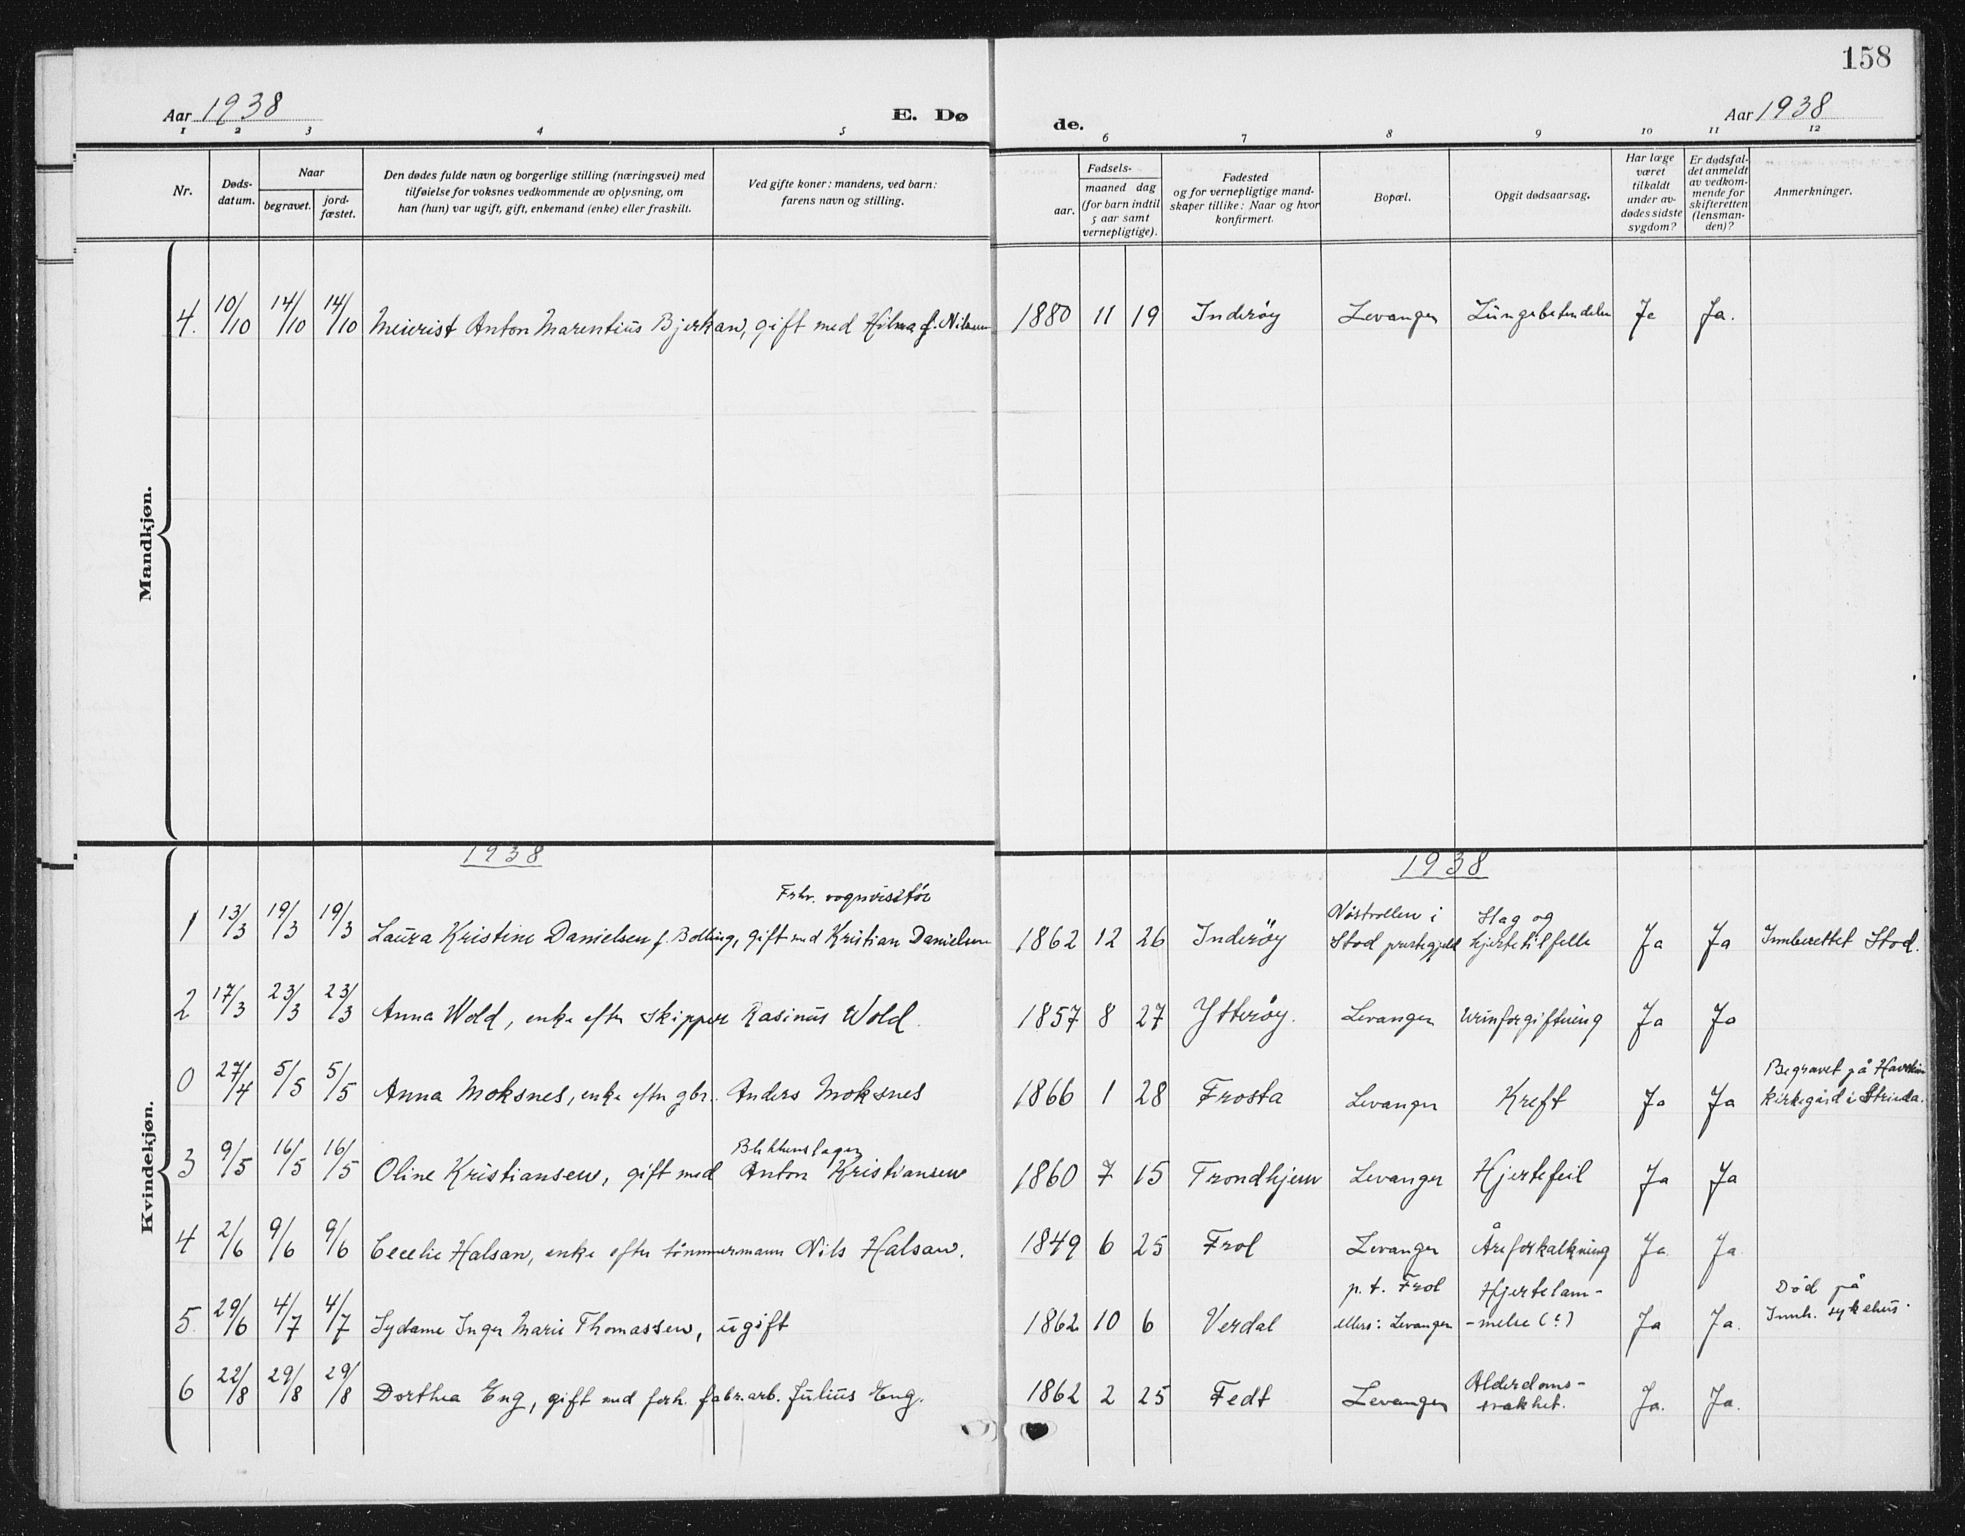 158
Aar 1938
E. Dø
de.
Aar 1938
1 2 3 4 5 6 7 8 9 10 11 12
Nr.
Døds-
datum.
Naar
begravet.
jord-
fæstet.
Den dødes fulde navn og borgerlige stilling (næringsvei) med
tilføielse for voksnes vedkommende av oplysning, om
han (hun) var ugift, gift, enkemand (enke) eller fraskilt.
Ved gifte koner: mandens, ved barn:
farens navn og stilling.
Fødsels-
aar.
maaned dag
(for barn indtil
5 aar samt
vernepligtige).
Fødested
og for vernepligtige mand-
skaper tillike: Naar og hvor
konfirmert.
Bopæl.
Opgit dødsaarsag.
Har læge
været
tilkaldt
under av-
dødes sidste
sygdom?
Er dødsfal-
det anmeldt
av vedkom-
mende for
skifteretten
(lensman-
den)?
Anmerkninger.
Mandkjøn.
4. 10/10 14/10 14/10 Meierist Anton Marentius Bjerkan, gift med Hilma f. Nilsen 1880 11 19 Inderøy Levanger Lungebetendelse Ja Ja.
Kvindekjøn.
1938
1938
Forhv. vognvisitør
1 13/3 19/3 19/3 Laura Kristine Danielsen f. Bolling, gift med Kristian Danielsen 1862 12 26 Inderöy
i
Stod prestegjeld
Slag og
hjertetilfelle
Ja Ja Innberettet Stod.
2 17/3 23/3 23/3 Anna Wold, enke efter skipper Rasinus Wold. 1857 8 27 Ytterøy. Levanger Urinforgiftning Ja Ja
0 27/4 5/5 5/5 Anna Moksnes, enke efter gbr. Anders Moksnes 1866 1 28 Frosta Levanger Kreft Ja Ja
Begravet på Havstein
kirkegård i Strinda.
Blikkenslager
3 9/5 16/5 16/5 Oline Kristiansen, gift med Anton Kristiansen 1860 7 15 Trondhjem Levanger Hjertefeil Ja Ja
4 2/6 9/6 9/6 Cecelie Halsan, enke efter tømmermann Nils Halsan. 1849 6 25 Frol Levanger Åreforkalkning Ja Ja
5. 29/6 4/7 4/7 Lydame Inger Marie Thomassen, ugift 1862 10 6 Verdal
p. t. Frol
ellers: Levanger
Hjertelam-
-melse (?)
Ja Ja.
Død på
Innh. sykehus.
6 22/8 29/8 29/8 Dorthea Eng, gift med forh. fabr.arb. Julius Eng. 1862 2 25 Fedt Levanger
Alderdoms-
svakhet.
Ja. Ja.